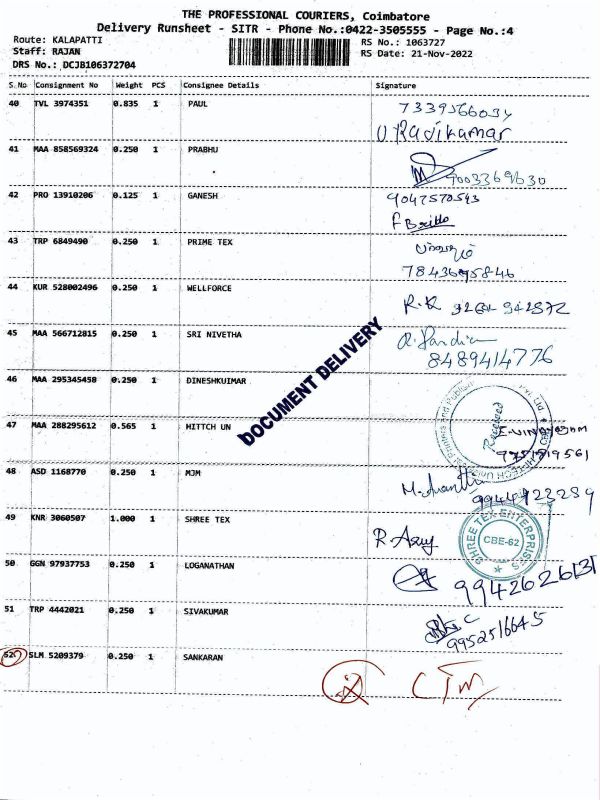 THE PROFESSIONAL COURIERS, Coimbatore
Delivery Runsheet - SITR - Phone No.:0422-3505555 - Page No.:4
Route: KALAPATTI
RS No.: 1063727
Staff: RAJAN
RS Date: 21-Nov-2022
DRS No.: DCJB106372704
S.No Consignment No Weight PCS Consignee Details Signature
40 TVL 3974351 0.835 1 PAUL
U Ravikumar
41 MAA 858569324 0.250 1 PRABHU
9003369630
42 PRO 13910206 0.125 1 GANESH 9047570543
43 TRP 6849490 0.250 1 PRIME TEX
44 KUR 528002496 0.250 1 WELLFORCE R.R
45 MAA 566712815 0.250 1 SRI NIVETHA
8489414776
DOCUMENT DELIVERY
46 MAA 295345458 0.250 1 DINESHKUIMAR
47 MAA 288295612 0.565 1 HITTCH UN
Received
48 ASD 1168770 0.250 1 MJM
9944923289
49 KNR 3060507 1.000 1 SHREE TEX
SHREE TEX ENTERPRISES
CBE-62
50 GGN 97937753 0.250 1 LOGANATHAN
9942626131
51 TRP 4442021 0.250 1 SIVAKUMAR
9952516645
52 SLM 5209379 0.250 1 SANKARAN